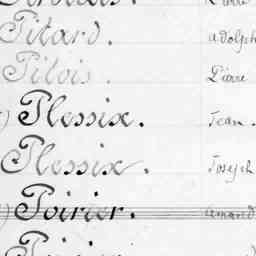 Pitard. Adolph
Pilois. Pierre
Plessix. Jean.
Plessix. Joseph
Poirier. Amand